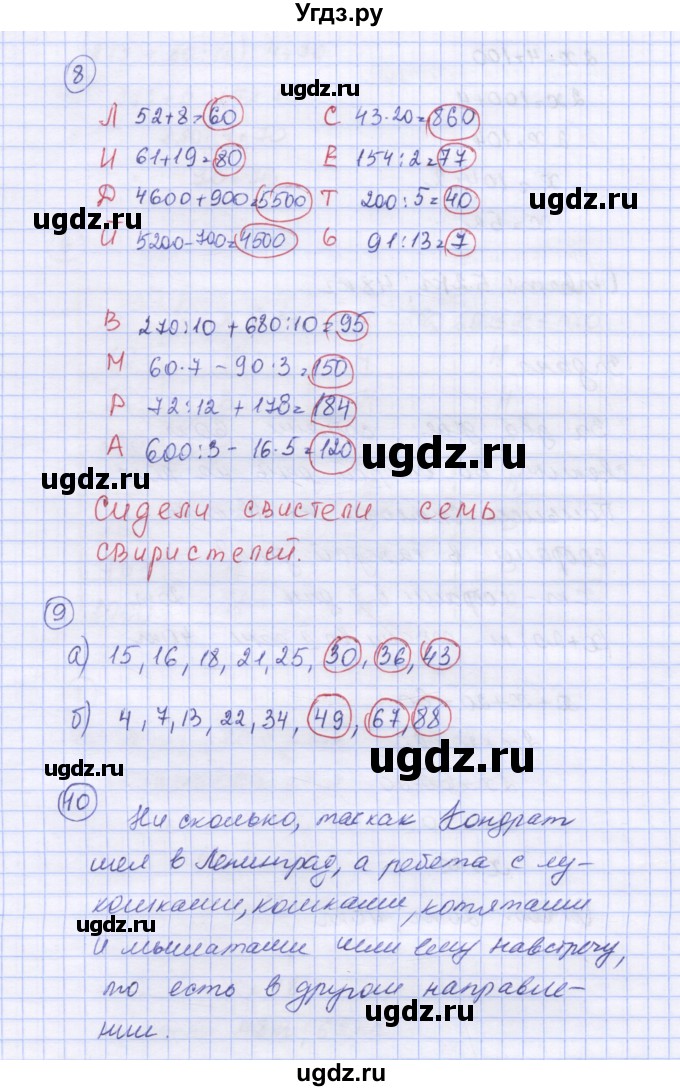 Угдз.ру
ugdz.ru
8
Л 52+8=60 С 43·20=860
И 61+19=80 Е 154:2=77
Д 4600+900=5500 Т 200:5=40
Й 5200-700=4500 Ь 91:13=7
ugdz.ru ugdz.ru
В 270:10 + 680:10=95
М 60·7 - 90·3=150
Р 72:12 + 178=184
А 600:3 - 16·5=120
ugdz.ru
ugdz.ru
Сидели свистели семь
свиристелей.
ugdz.ru
9
а) 15, 16, 18, 21, 25, 30, 36, 43
б) 4, 7, 13, 22, 34, 49, 67, 88
ugdz.ru
ugdz.ru
10
Ни сколько, так как Кондрат
шел в Ленинград, а ребята с лу-
кошками, кошками, котятами
ugdz.ru
и мышатами шли ему навстречу,
то есть в другом направле-
нии.
ugdz.ru
ugdz.ru
Угдз.ру